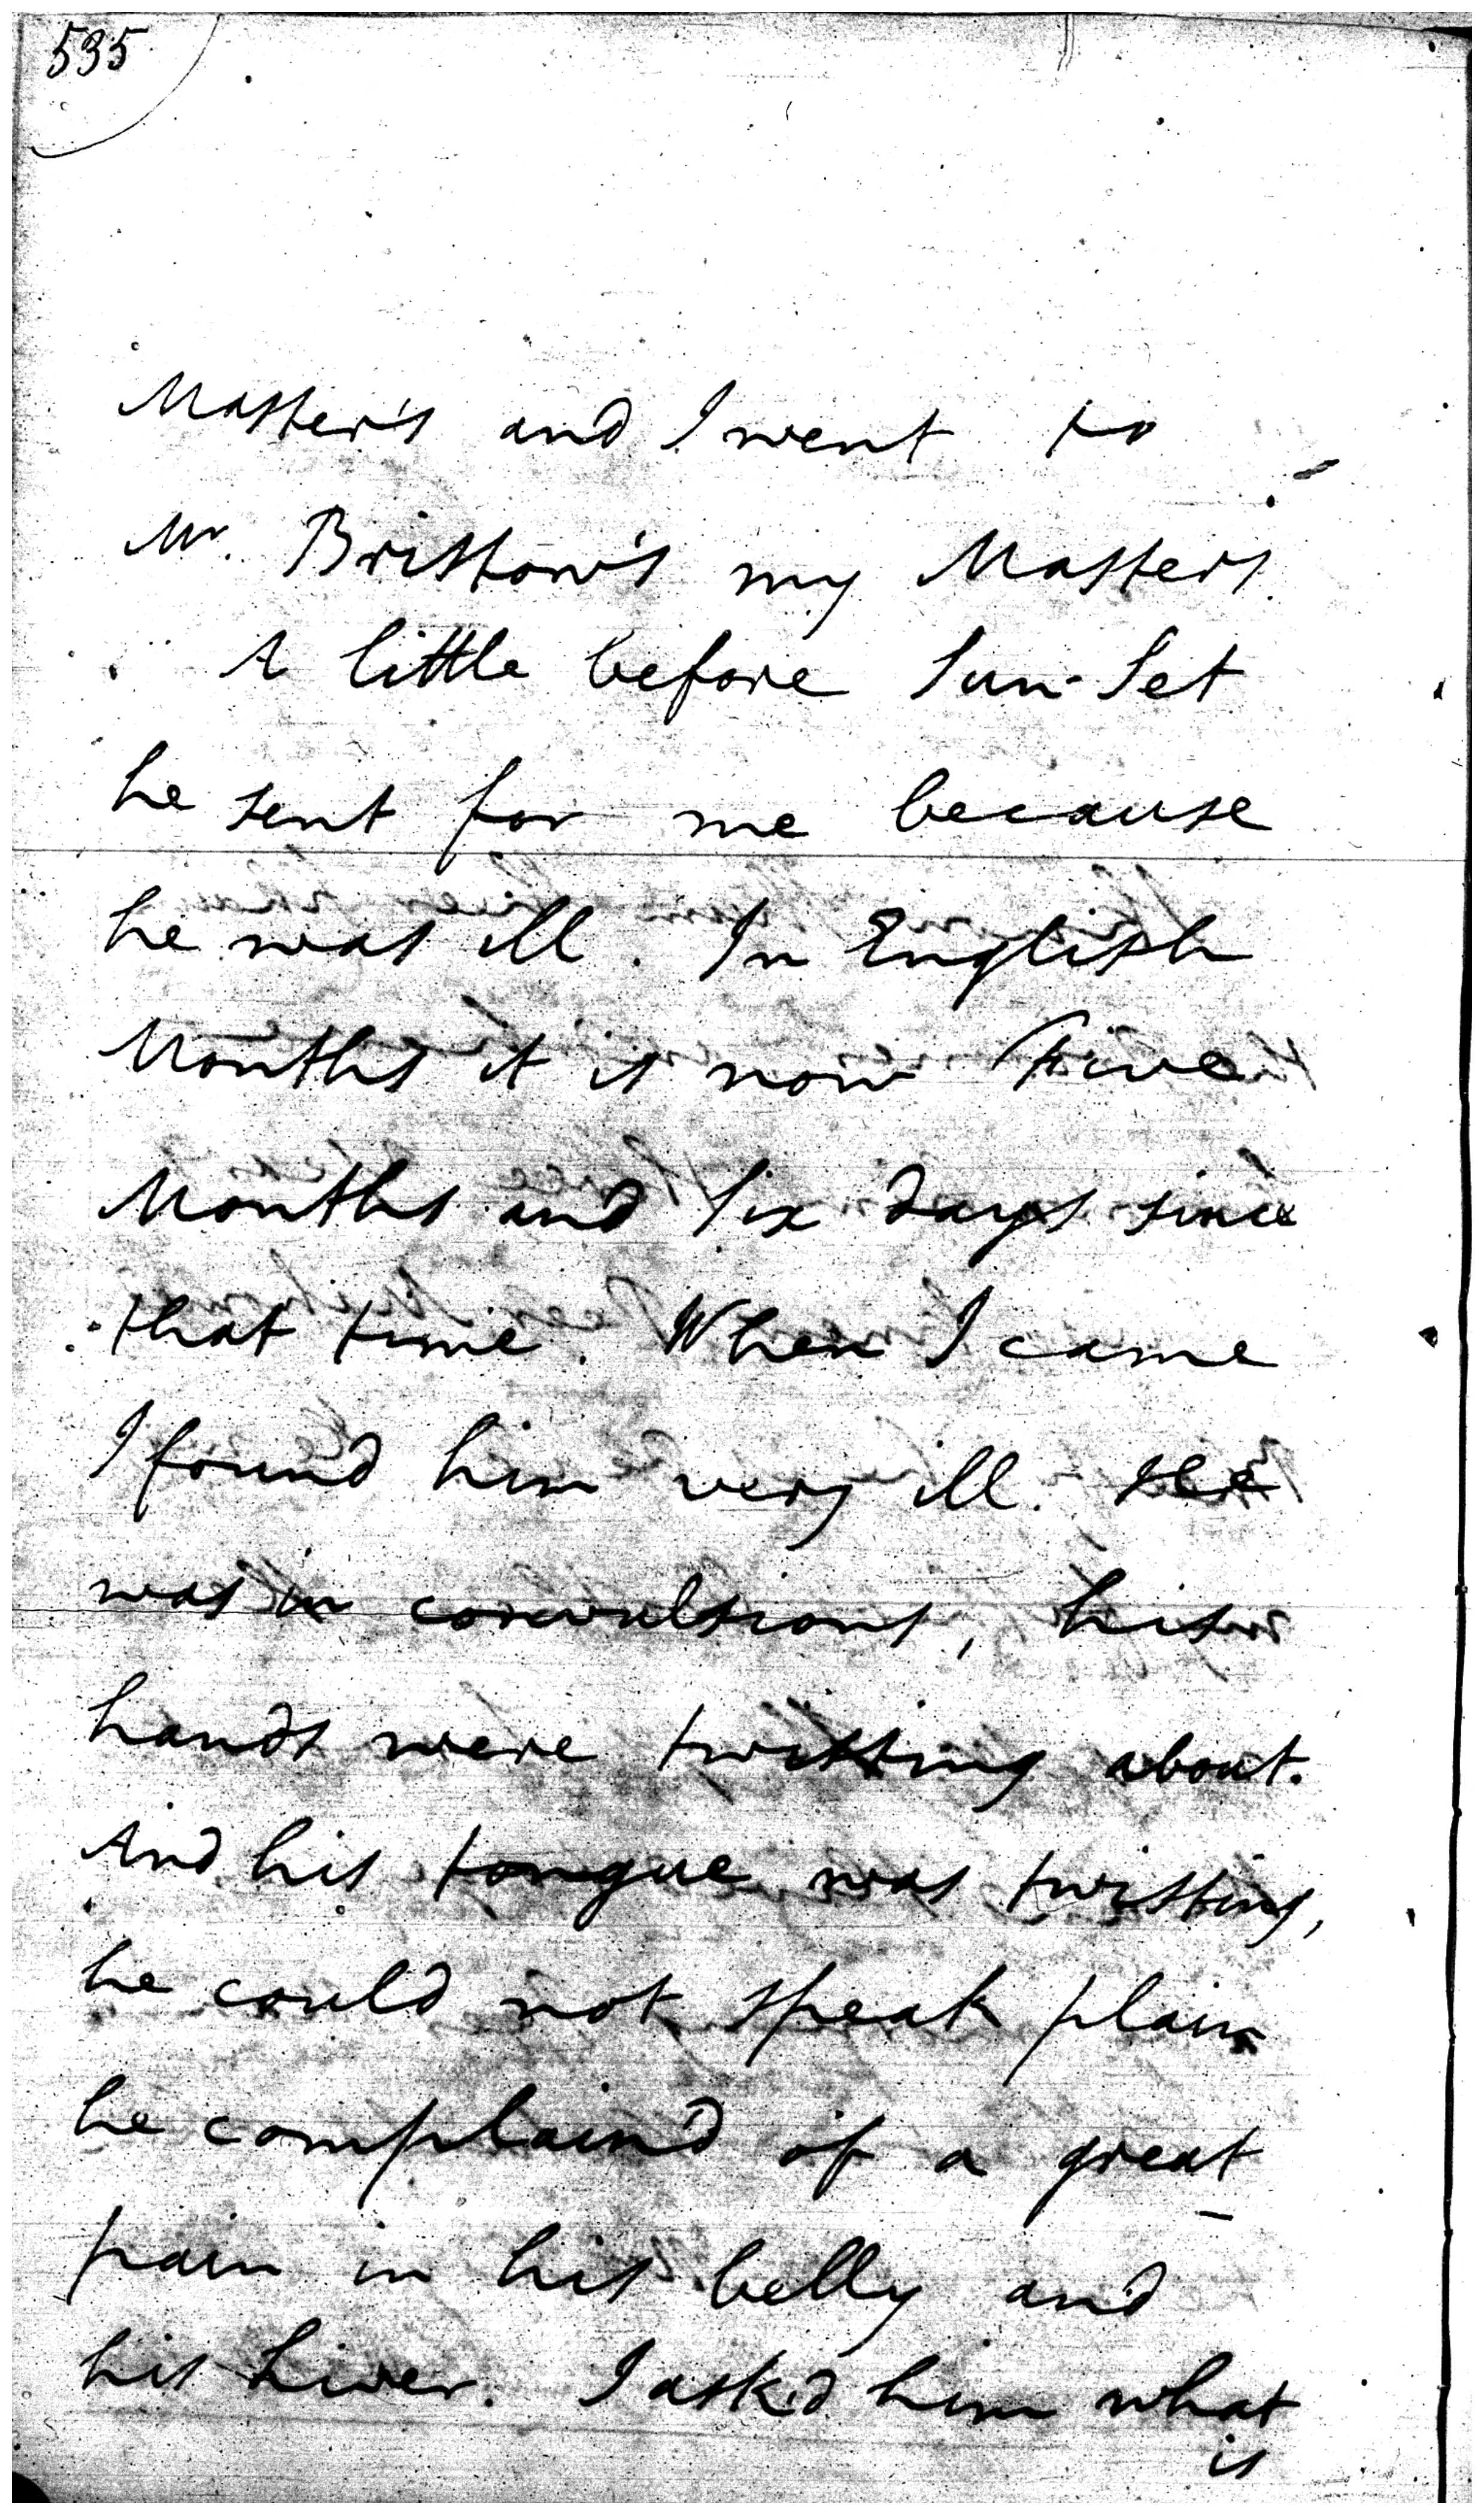 535
Master's and I went to
Mr. Bristow's my Masters.
A little before Sun-Set
he sent for me because
he was ill. In English
Months it is now Five
Months and Six days since
that time. When I came
I found him very ill. He
was in convulsions, his
hands were twisting about.
And his tongue was twisting,
he could not speak plain
he complain'd of a great
pain in his belly and
his Liver. I ask'd him what
is